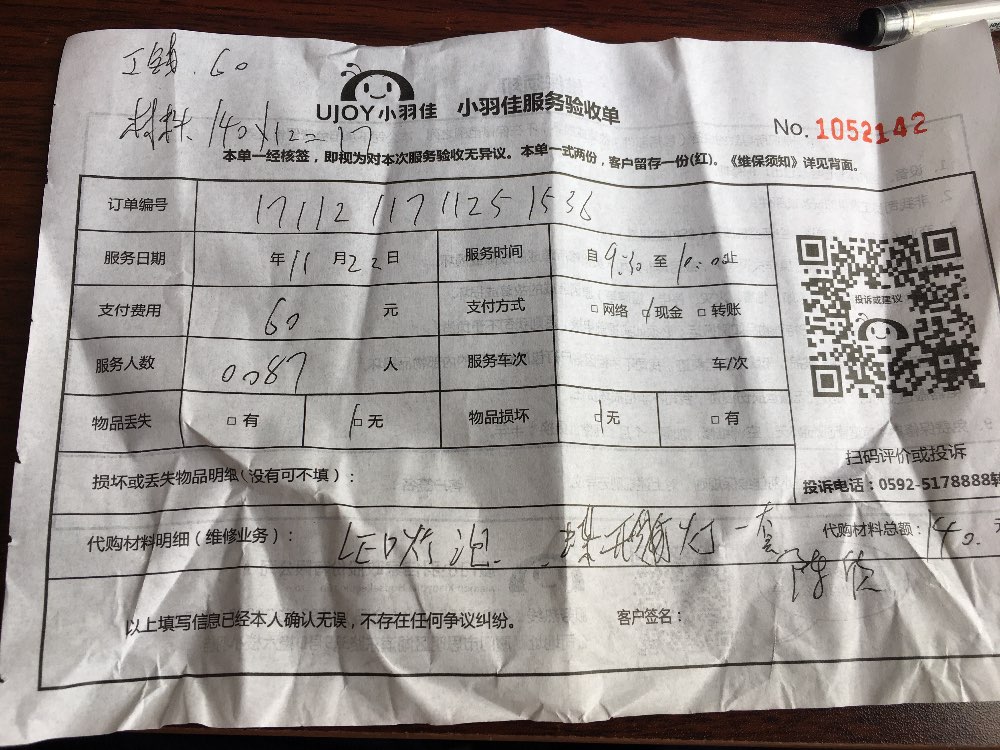 工钱.60
材料140×12=17
UJOY小羽佳 小羽佳服务验收单
No. 1052142
本单一经核签，即视为对本次服务验收无异议。本单一式两份，客户留存一份(红)。《维保须知》详见背面。
订单编号 171121171251536
服务日期 年11月22日 服务时间 自9:30至10:00止
支付费用 60 元 支付方式 □网络 □现金 □转账
服务人数 0087 人 服务车次 车/次
物品丢失 □有 □无 物品损坏 □无 □有
投诉或建议
扫码评价或投诉
投诉电话：0592-5178888转
损坏或丢失物品明细(没有可不填)：
代购材料明细（维修业务）： LED灯泡 灯一套 代购材料总额：140.元
以上填写信息已经本人确认无误，不存在任何争议纠纷。 客户签名：